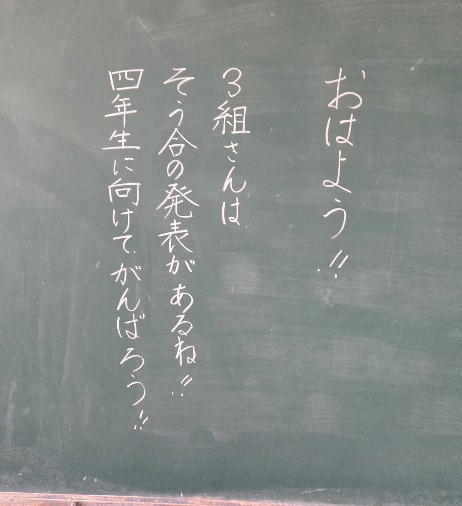 おはよう!!
3組さんは
そう合の発表があるね!!
四年生に向けてがんばろう!!